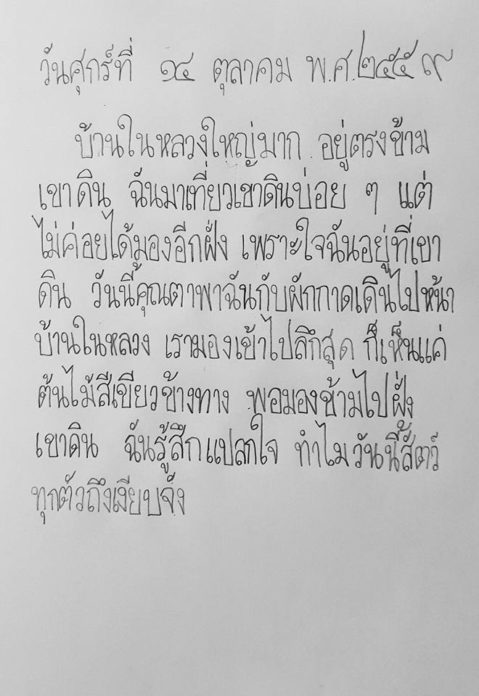 วันศุกร์ที่ ๑๔ ตุลาคม พ.ศ.๒๕๕๙
บ้านในหลวงใหญ่มาก อยู่ตรงข้าม
เขาดิน ฉันมาเที่ยวเขาดินบ่อย ๆ แต่
ไม่ค่อยได้มองอีกฝั่ง เพราะใจฉันอยู่ที่เขา
ดิน วันนี้คุณตาพาฉันกับผักกาดเดินไปหน้า
บ้านในหลวง เรามองเข้าไปลึกสุด ก็เห็นแค่
ต้นไม้สีเขียวข้างทาง พอมองข้ามไปฝั่ง
เขาดิน ฉันรู้สึกแปลกใจ ทำไมวันนี้สัตว์
ทุกตัวถึงเงียบจัง